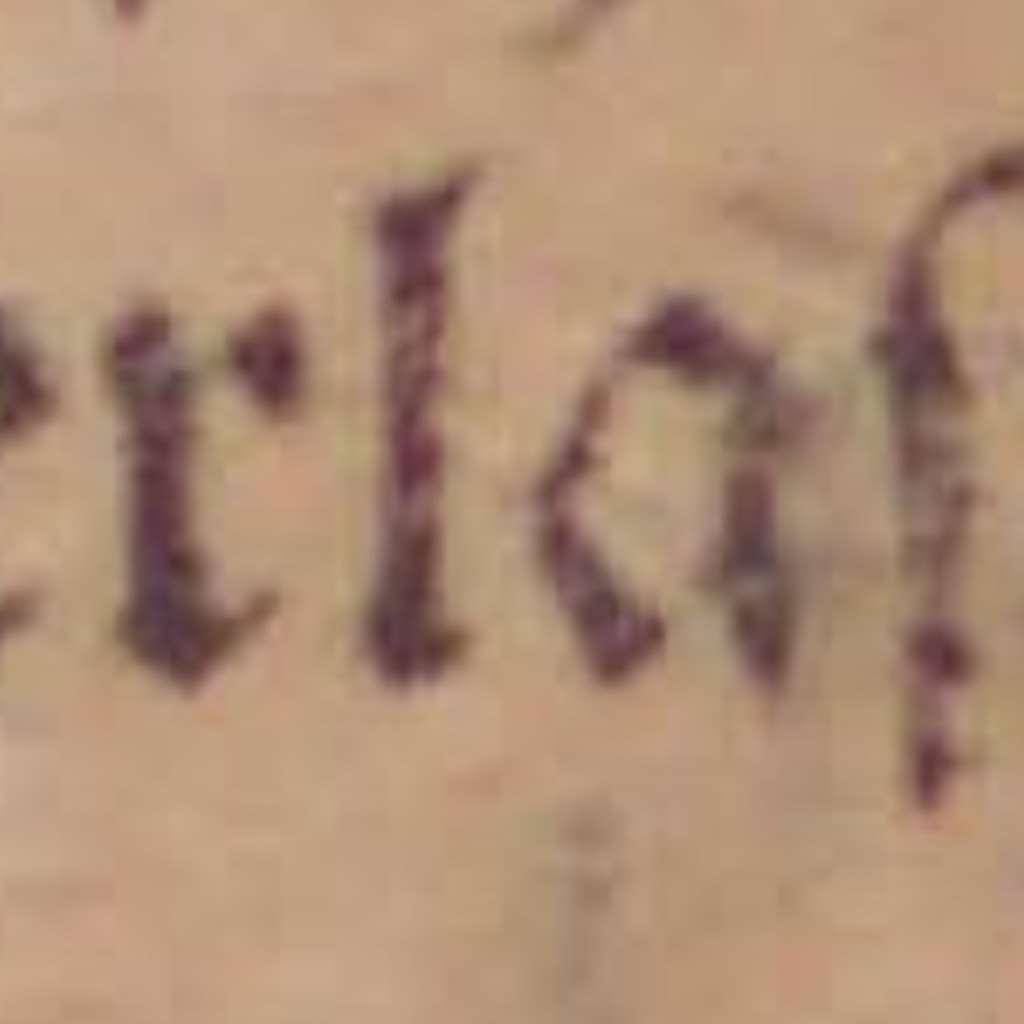 rlaſ